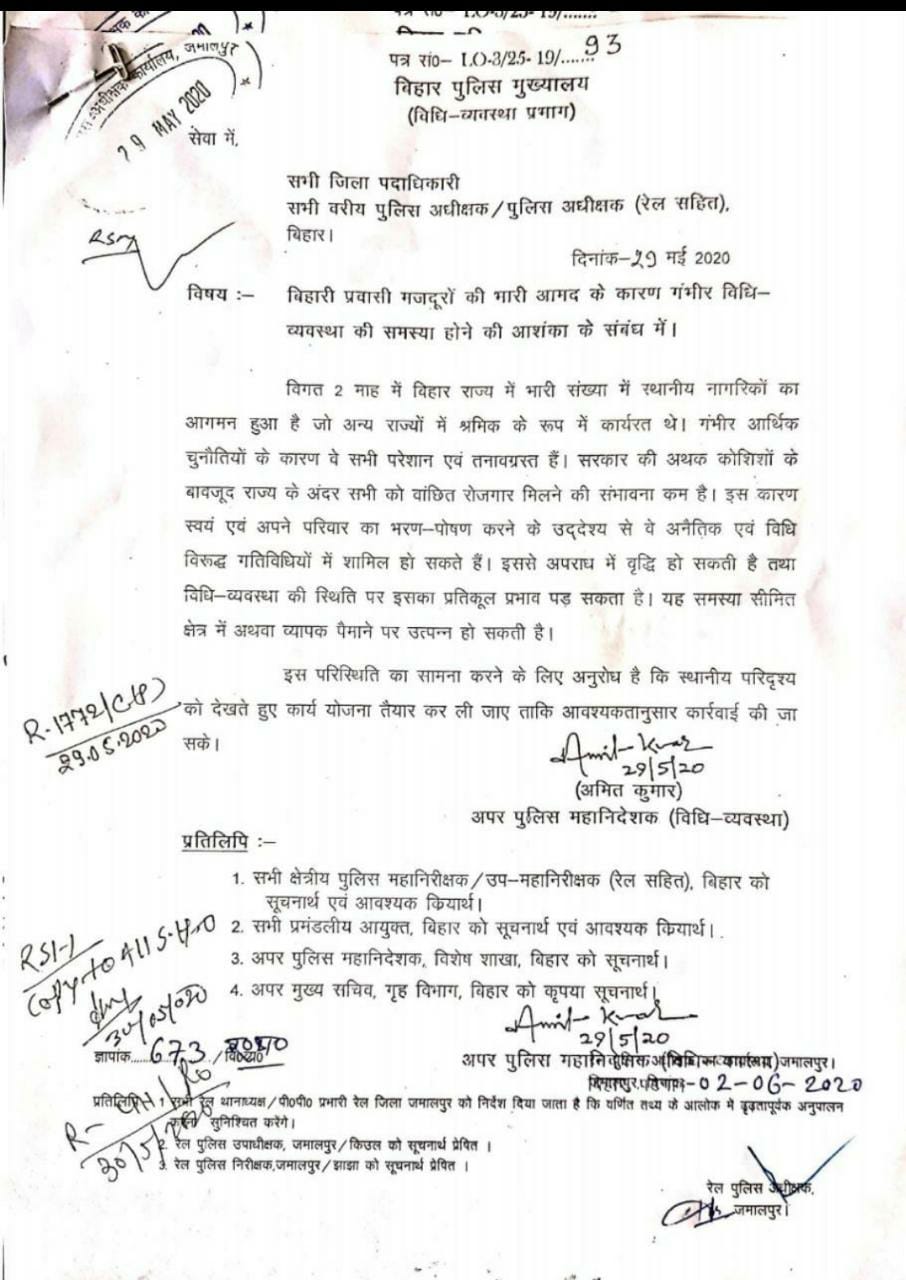 पत्र सं०– I.O-3/25-19/....... 93
बिहार पुलिस मुख्यालय
(विधि–व्यवस्था प्रभाग)
कार्यालय, जमालपुर
29 MAY 2020
सेवा में,
सभी जिला पदाधिकारी
सभी वरीय पुलिस अधीक्षक/पुलिस अधीक्षक (रेल सहित),
बिहार।
दिनांक–29 मई 2020
विषय :– बिहारी प्रवासी मजदूरों की भारी आमद के कारण गंभीर विधि–
व्यवस्था की समस्या होने की आशंका के संबंध में।
विगत 2 माह में बिहार राज्य में भारी संख्या में स्थानीय नागरिकों का
आगमन हुआ है जो अन्य राज्यों में श्रमिक के रूप में कार्यरत थे। गंभीर आर्थिक
चुनौतियों के कारण वे सभी परेशान एवं तनावग्रस्त हैं। सरकार की अथक कोशिशों के
बावजूद राज्य के अंदर सभी को वांछित रोजगार मिलने की संभावना कम है। इस कारण
स्वयं एवं अपने परिवार का भरण–पोषण करने के उद्देश्य से वे अनैतिक एवं विधि
विरूद्ध गतिविधियों में शामिल हो सकते हैं। इससे अपराध में वृद्धि हो सकती है तथा
विधि–व्यवस्था की स्थिति पर इसका प्रतिकूल प्रभाव पड़ सकता है। यह समस्या सीमित
क्षेत्र में अथवा व्यापक पैमाने पर उत्पन्न हो सकती है।
इस परिस्थिति का सामना करने के लिए अनुरोध है कि स्थानीय परिदृश्य
को देखते हुए कार्य योजना तैयार कर ली जाए ताकि आवश्यकतानुसार कार्रवाई की जा
सके।
R-1772/(C/P)
29.05.2020
Amit Kumar
29/5/20
(अमित कुमार)
अपर पुलिस महानिदेशक (विधि–व्यवस्था)
प्रतिलिपि :–
1. सभी क्षेत्रीय पुलिस महानिरीक्षक/उप–महानिरीक्षक (रेल सहित), बिहार को
सूचनार्थ एवं आवश्यक क्रियार्थ।
2. सभी प्रमंडलीय आयुक्त, बिहार को सूचनार्थ एवं आवश्यक क्रियार्थ।
3. अपर पुलिस महानिदेशक, विशेष शाखा, बिहार को सूचनार्थ।
4. अपर मुख्य सचिव, गृह विभाग, बिहार को कृपया सूचनार्थ।
RSI-1
Copy to All S.H.O
30/05/020
Amit Kumar
29/5/20
अपर पुलिस महानिदेशक (विधि–व्यवस्था) जमालपुर।
ज्ञापांक.....673./
02-06-2020
प्रतिलिपि:– 1. सभी रेल थानाध्यक्ष/पी०पी० प्रभारी रेल जिला जमालपुर को निर्देश दिया जाता है कि वर्णित तथ्य के आलोक में दृढ़तापूर्वक अनुपालन
सुनिश्चित करेंगे।
2. रेल पुलिस उपाधीक्षक, जमालपुर/किउल को सूचनार्थ प्रेषित ।
3. रेल पुलिस निरीक्षक,जमालपुर/झाझा को सूचनार्थ प्रेषित ।
30/5/2020
रेल पुलिस अधीक्षक,
जमालपुर।